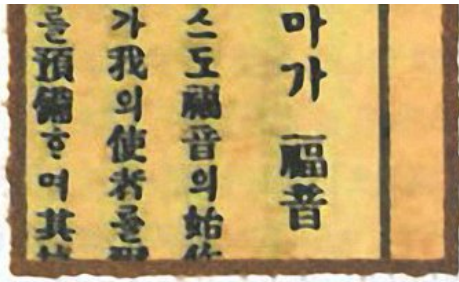 마가 福音
스도福音의始作
가我의使者를
를預備ᄒᆞ며其